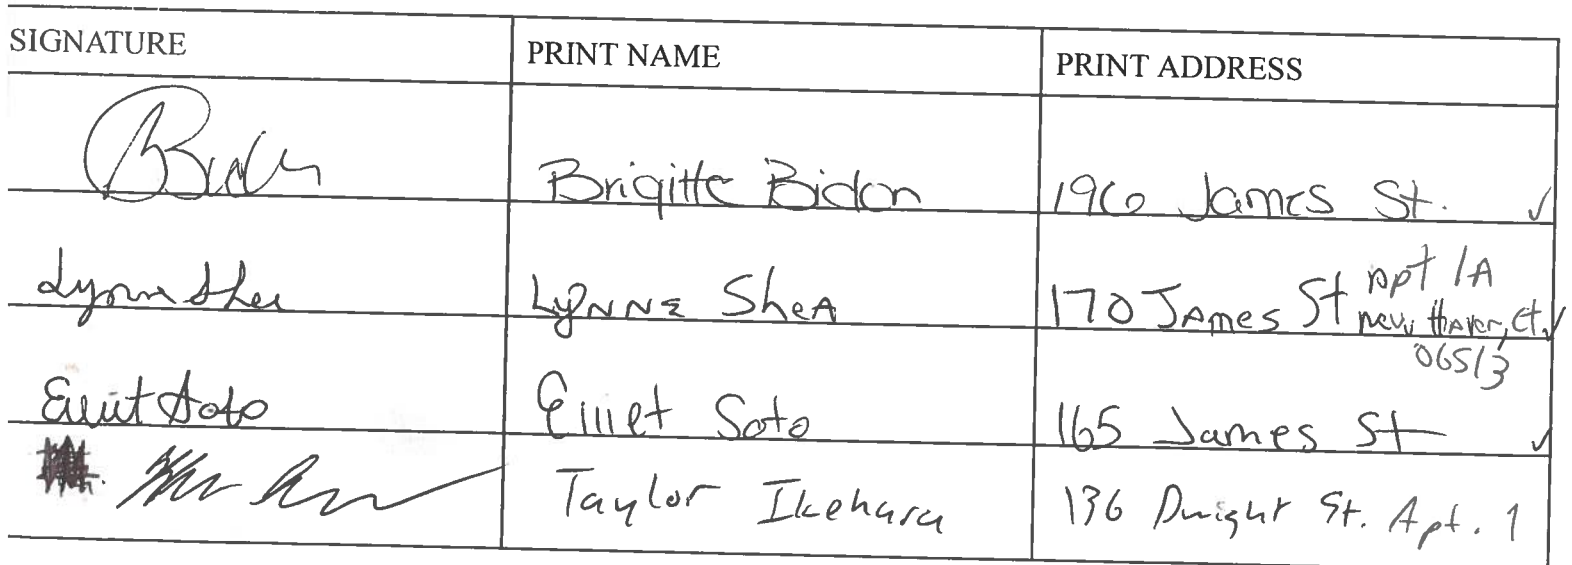 SIGNATURE PRINT NAME PRINT ADDRESS
Brigitte Bidon 196 James St. ✓
Lynne Shea LYNNE SheA 170 JAmes St Apt 1A
New Haven, Ct. ✓
06513
Soto Soto 165 James St ✓
Taylor Ikehara 136 Dwight St. Apt. 1